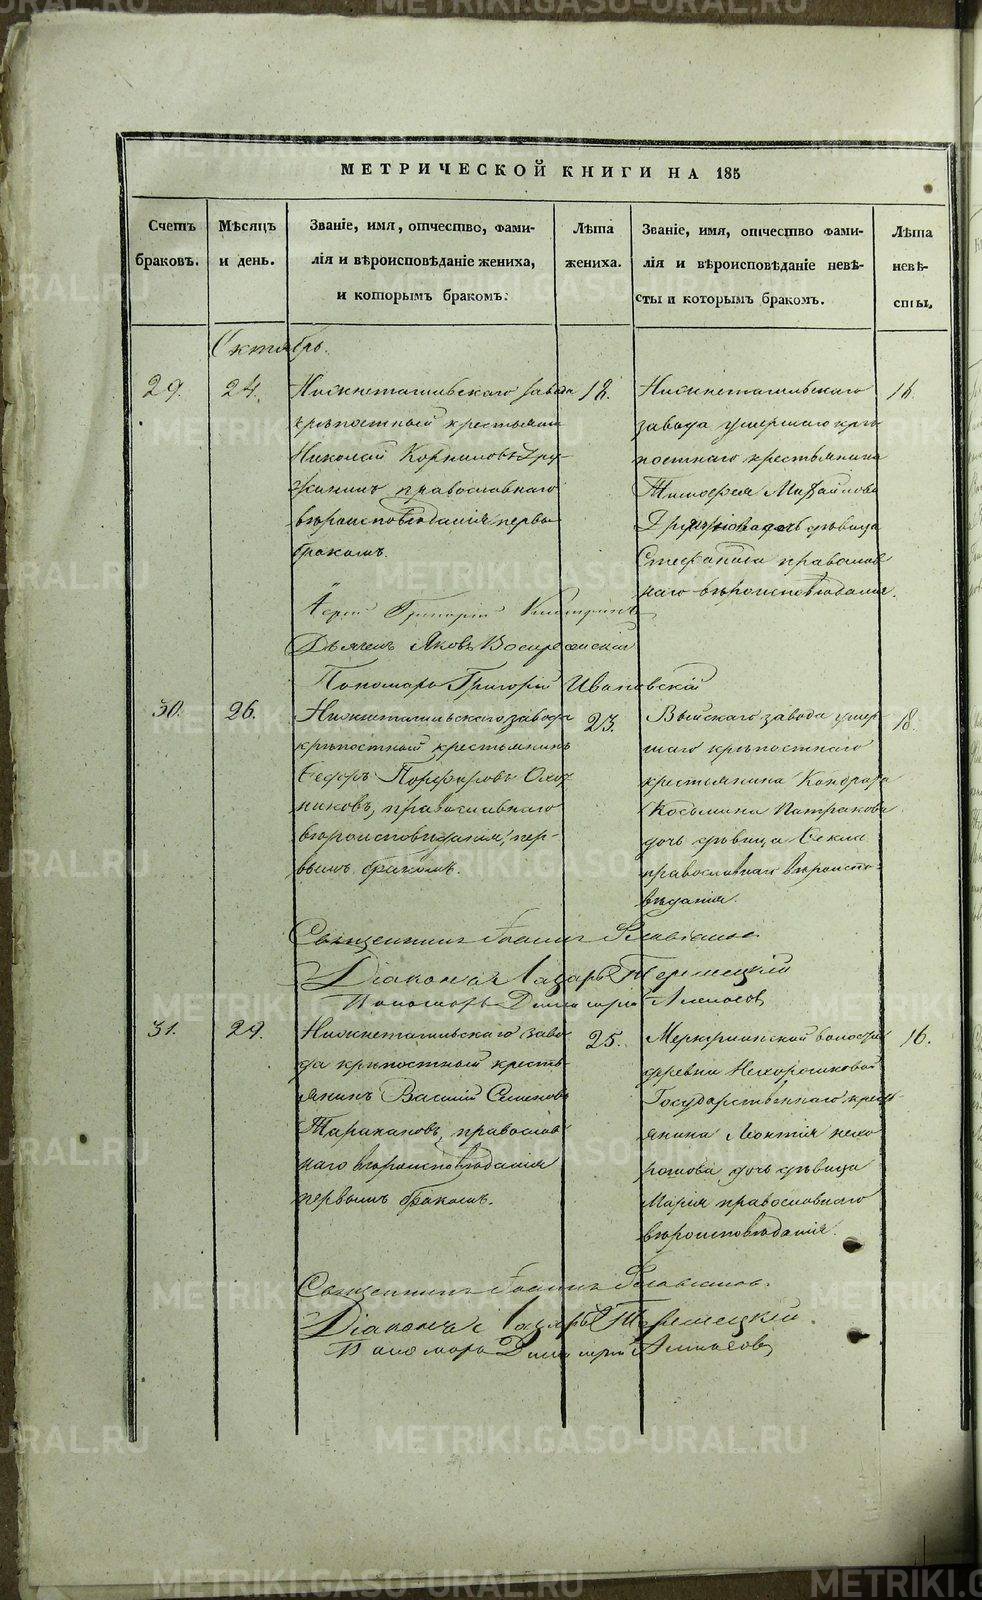 МЕТРИЧЕСКОЙ КНИГИ НА 185
Счетъ
браковъ.
Мѣсяцъ
и день.
Званіе, имя, отчество, фами-
лія и вѣроисповѣданіе жениха,
и которымъ бракомъ.
Лѣта
жениха.
Званіе, имя, отчество фами-
лія и вѣроисповѣданіе невѣ-
сты и которымъ бракомъ.
Лѣта
невѣ-
сты.
Октябрь.
29.
24.
Нижнетагильскаго завода
крѣпостный крестьянин
Николай Корниловъ Дру-
жининъ православнаго
вѣроисповѣданія первы
бракомъ.
18.
Нижнетагильскаго
завода умершаго крѣ
постнаго крестьянина
Тимофея Михайлова
дочь дѣвица
Стефанида православ
наго вѣроисповѣданія.
16.
Іерей Григорій
Дьячекъ Яковъ Воскресенскій
Пономарь Григорій Ивановскій
30.
26.
Нижнетагильскаго завода
крѣпостный крестьянинъ
Ѳедоръ Порфировъ Охот
никовъ, православнаго
вѣроисповѣданія, пер-
вымъ бракомъ.
23.
Выйскаго завода умер-
шаго крѣпостнаго
крестьянина Кондрата
Косьмина Патракова
дочь дѣвица Ѳекла
православнаго вѣроиспо-
вѣданія.
18.
Священникъ Іоаннъ
Діаконъ Лазарь Теремецкій
Пономарь Димитрій
31.
29.
Нижнетагильскаго заво-
да крѣпостный кресть-
янинъ Василій Семеновъ
Таракановъ, православ
наго вѣроисповѣданія
первымъ бракомъ.
25.
Меркушинской волости
деревни Нехорошковой
Государственнаго крест
янина Леонтія Нехо
рошкова дочь дѣвица
Марія православнаго
вѣроисповѣданія.
16.
Священникъ Іоаннъ
Діаконъ Лазарь Теремецкій.
Пономарь Димитрій
METRIKI.GASO-URAL.RU